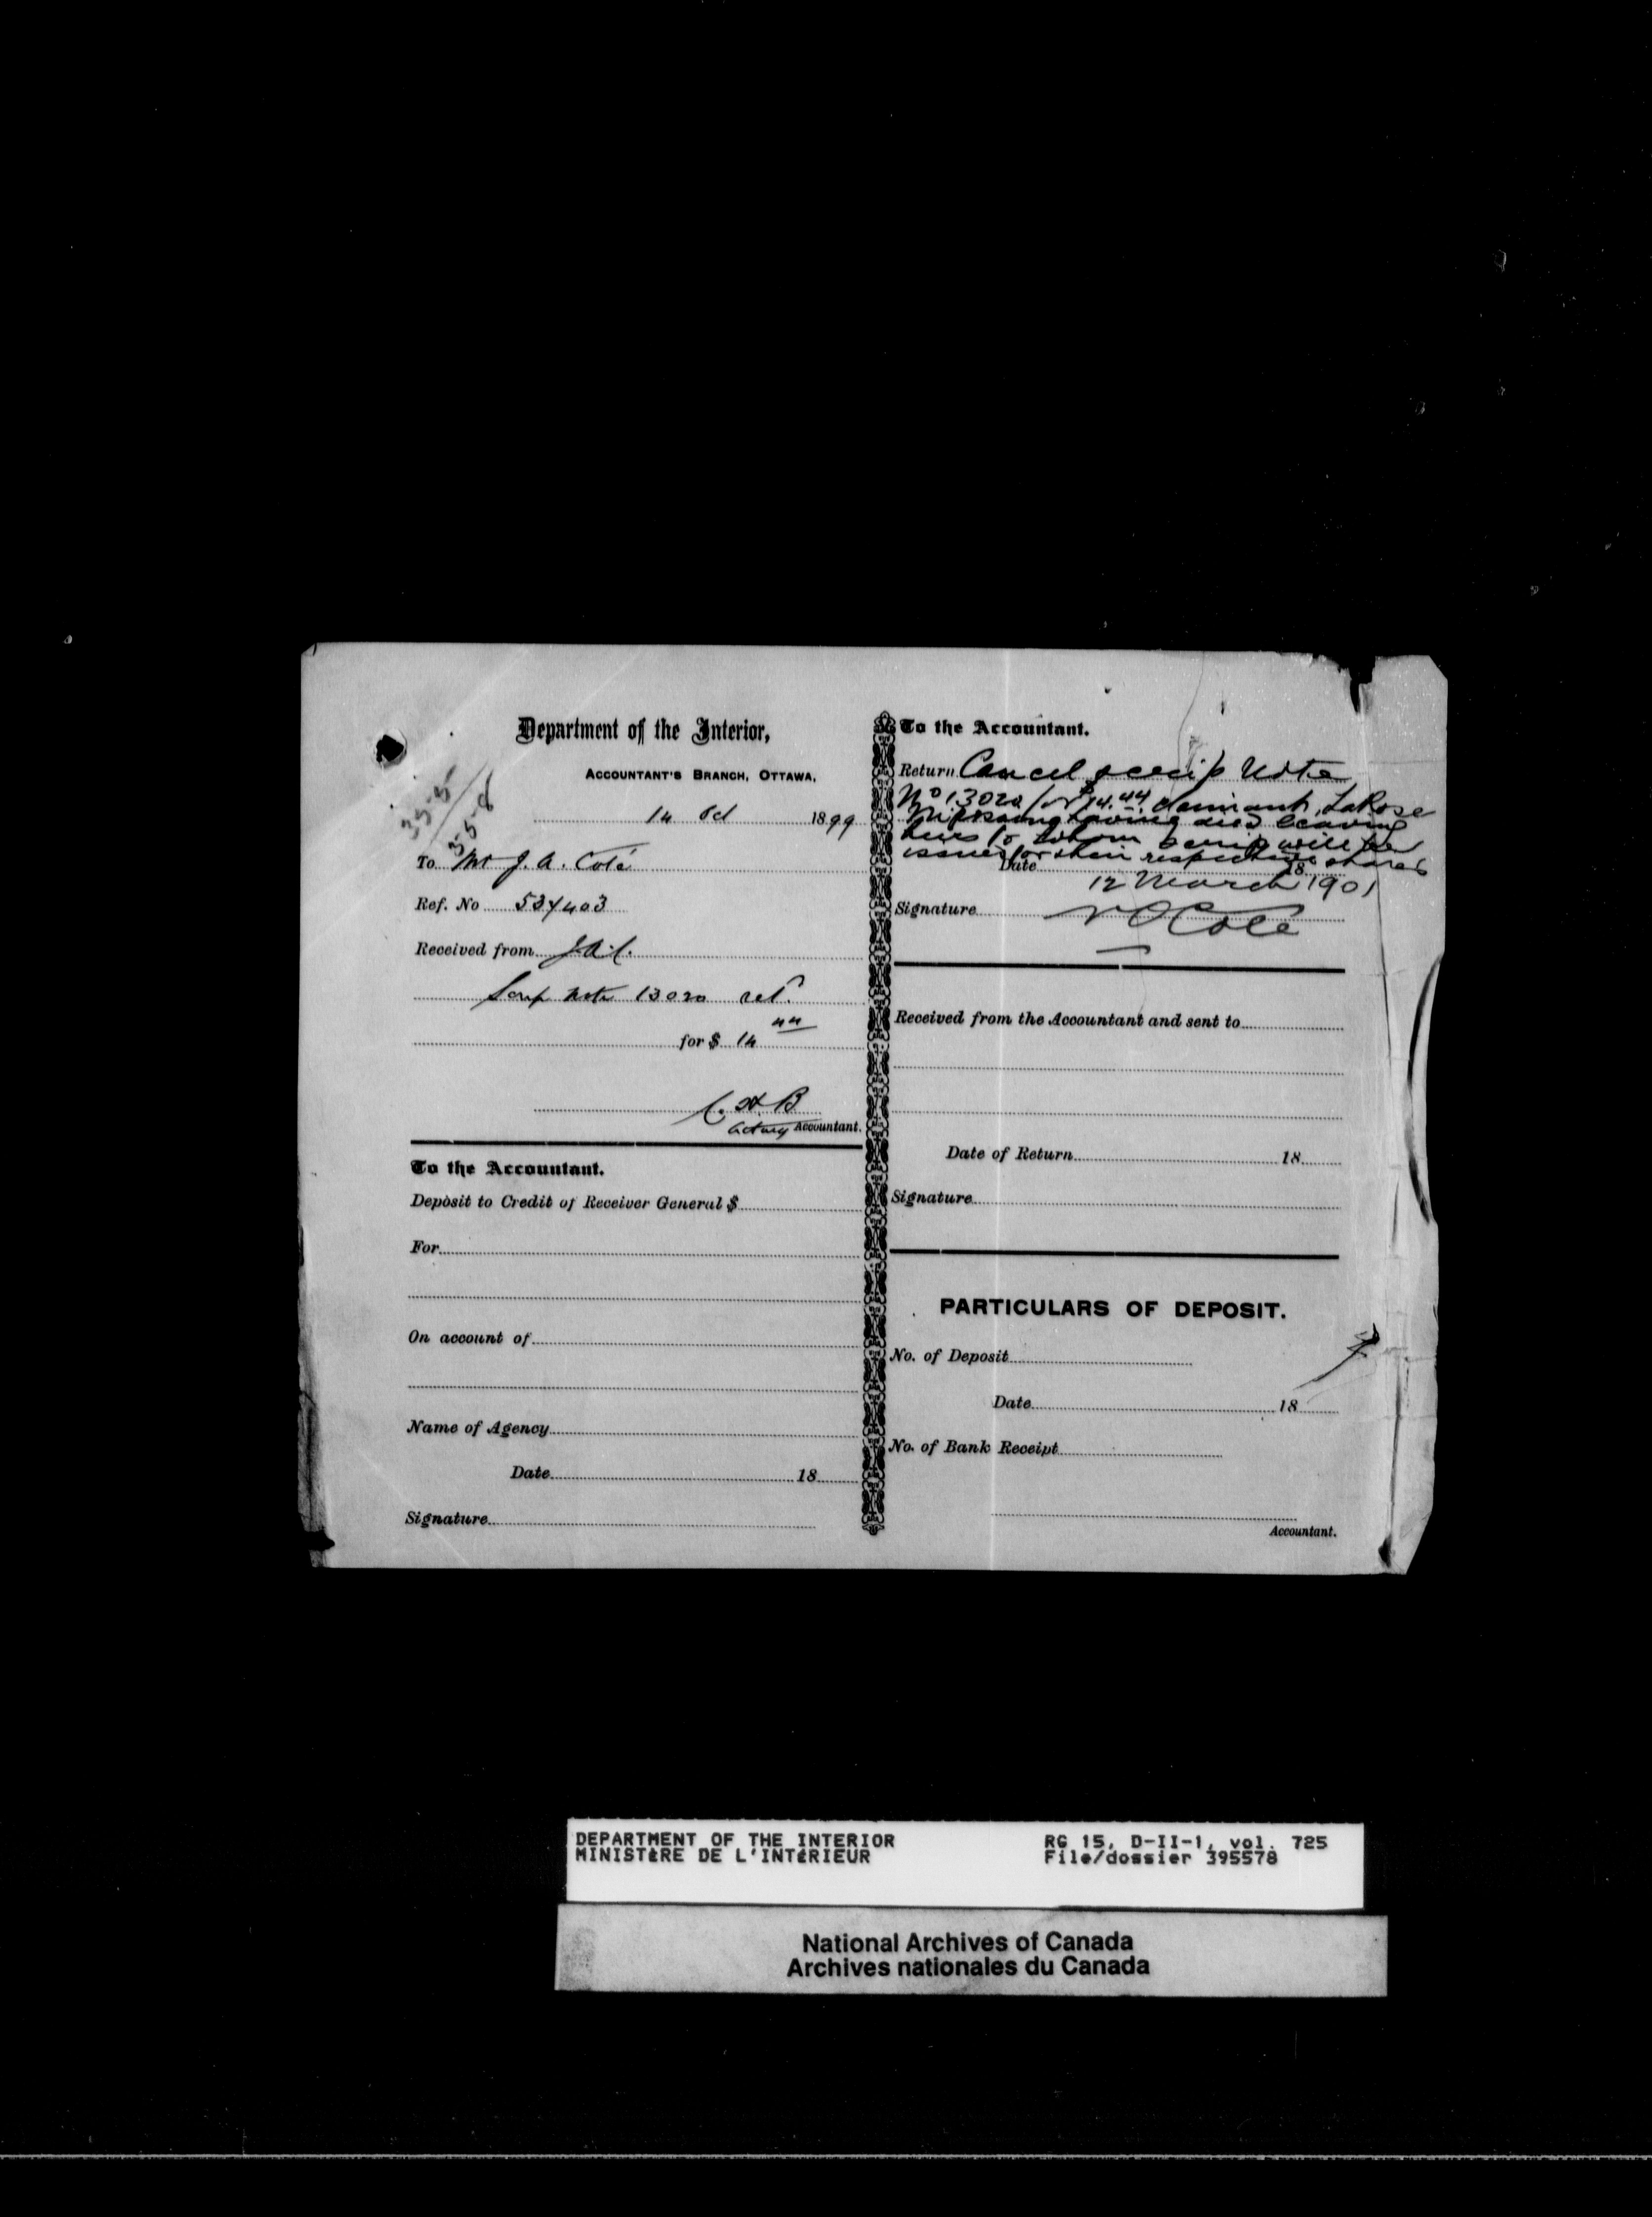 Department of the Interior,
ACCOUNTANT'S BRANCH, OTTAWA,
14 Oct 1899
To Mr J. A. Coté
Ref. No 537403
Received from J.A.C.
Scrip Note 13020 ret.
for $ 14 44
C. H. B
Acting Accountant.
To the Accountant.
Deposit to Credit of Receiver General $
For
On account of
Name of Agency
Date 18
Signature
To the Accountant.
Return Cancel scrip Note
No 13020 for $14.44 claimant, LaRose
Nipissing having died leaving
heirs to whom scrip will be
issued for their respective shares
Date 18
12 March 1901
Signature Coté
Received from the Accountant and sent to
Date of Return 18
Signature
PARTICULARS OF DEPOSIT.
No. of Deposit
Date 18
No. of Bank Receipt
Accountant.
DEPARTMENT OF THE INTERIOR
MINISTÈRE DE L'INTÉRIEUR
RG 15, D-II-1, vol. 725
File/dossier 395578
National Archives of Canada
Archives nationales du Canada